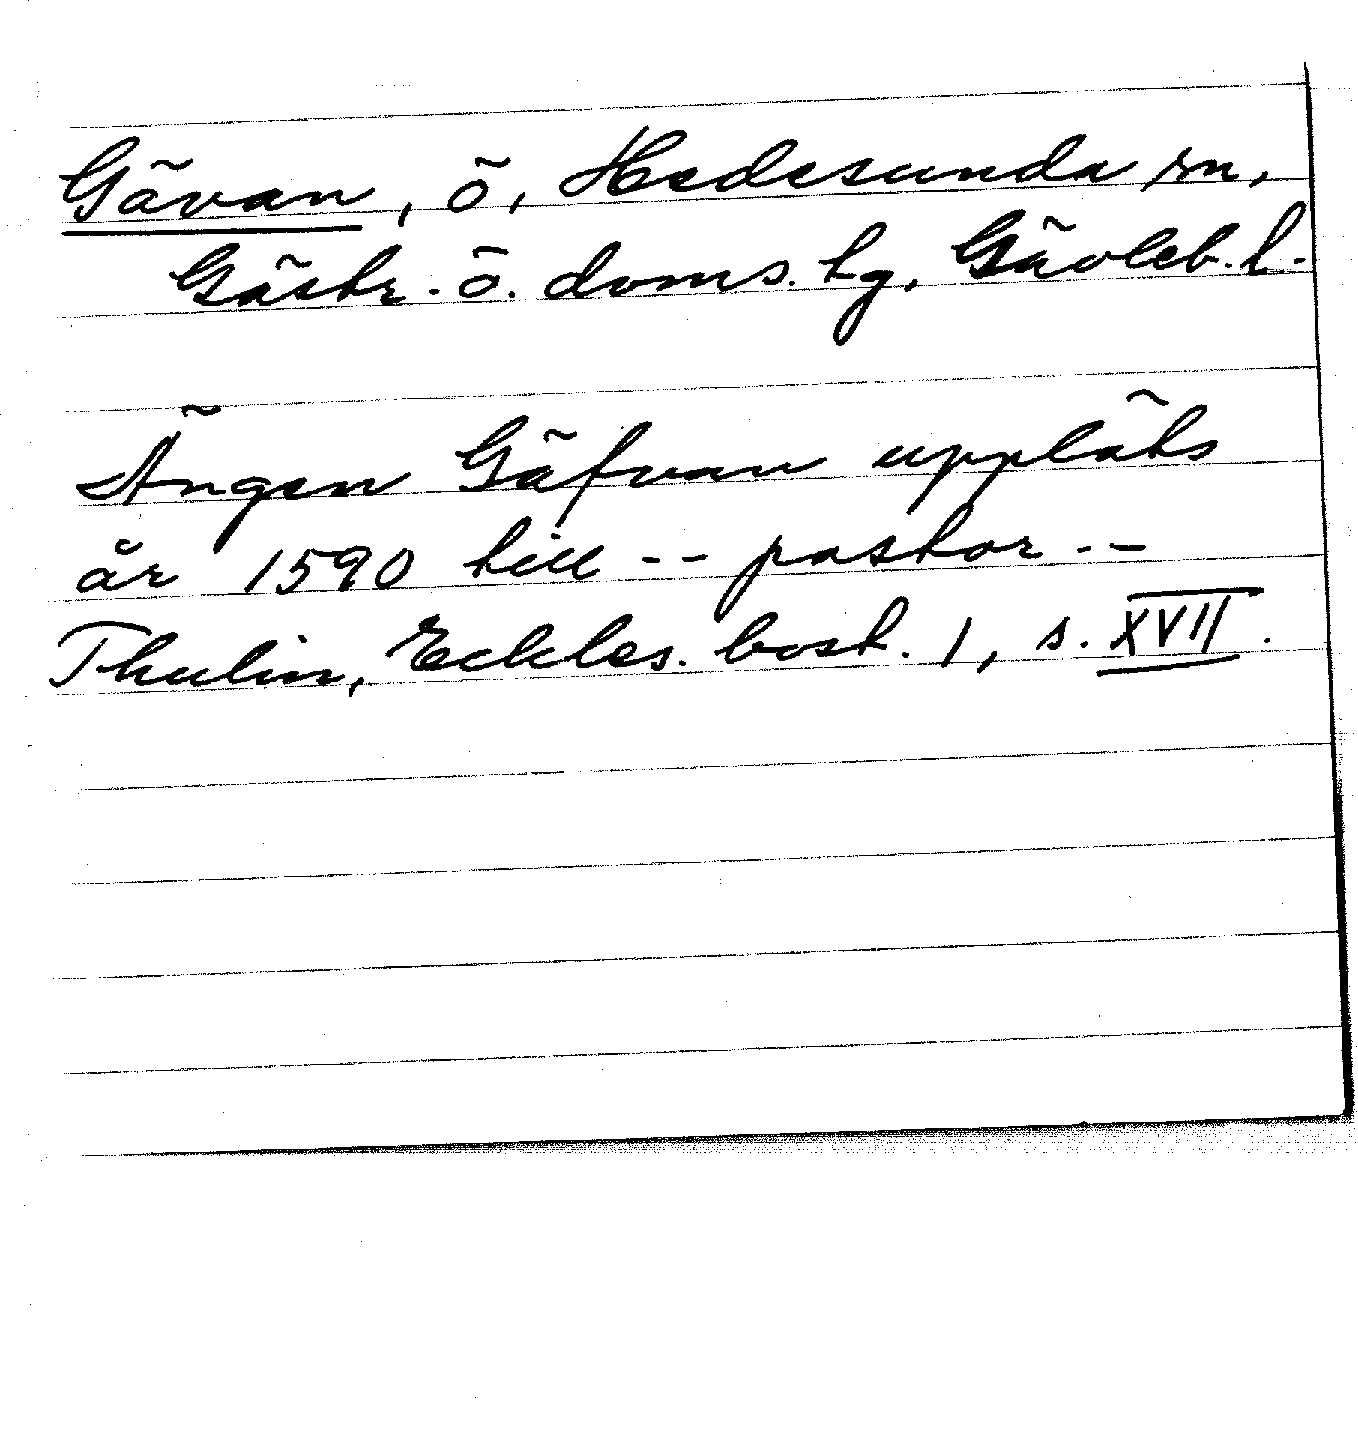 Gävan, ö, Hedesunda sn,
Gästr. ö. doms. tg, Gävleb. l.
Ängen Gäfvan uppläts
år 1590 till -- pastor --
Thulin, Eckles. bost. 1, s. XVII.